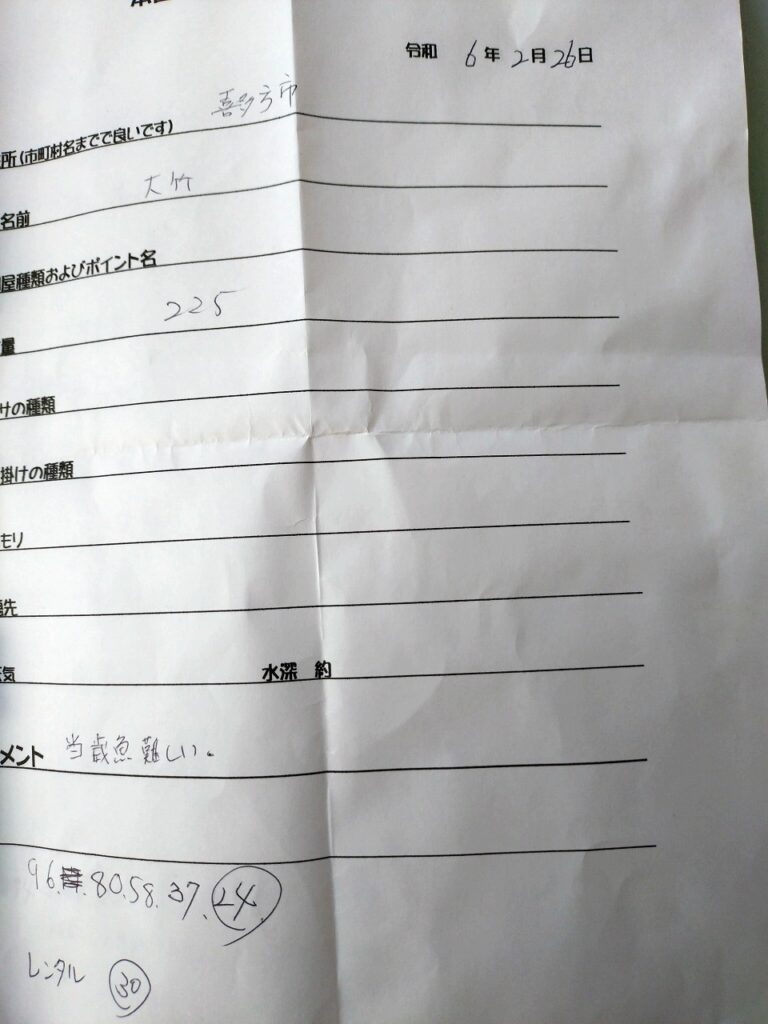 令和 6年 2月 26日
喜多方市
所(市町村名までで良いです)
大竹
名前
屋種類およびポイント名
225
量
サの種類
掛けの種類
モリ
先
気 水深 約
メント 当歳魚難しい。
96. 80.58.37.24.
レンタル 30